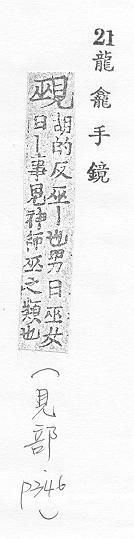 21 龍龕手鏡
覡
胡的反巫丨也男曰巫女
曰丨事見神師巫之類也
(見部. p346)